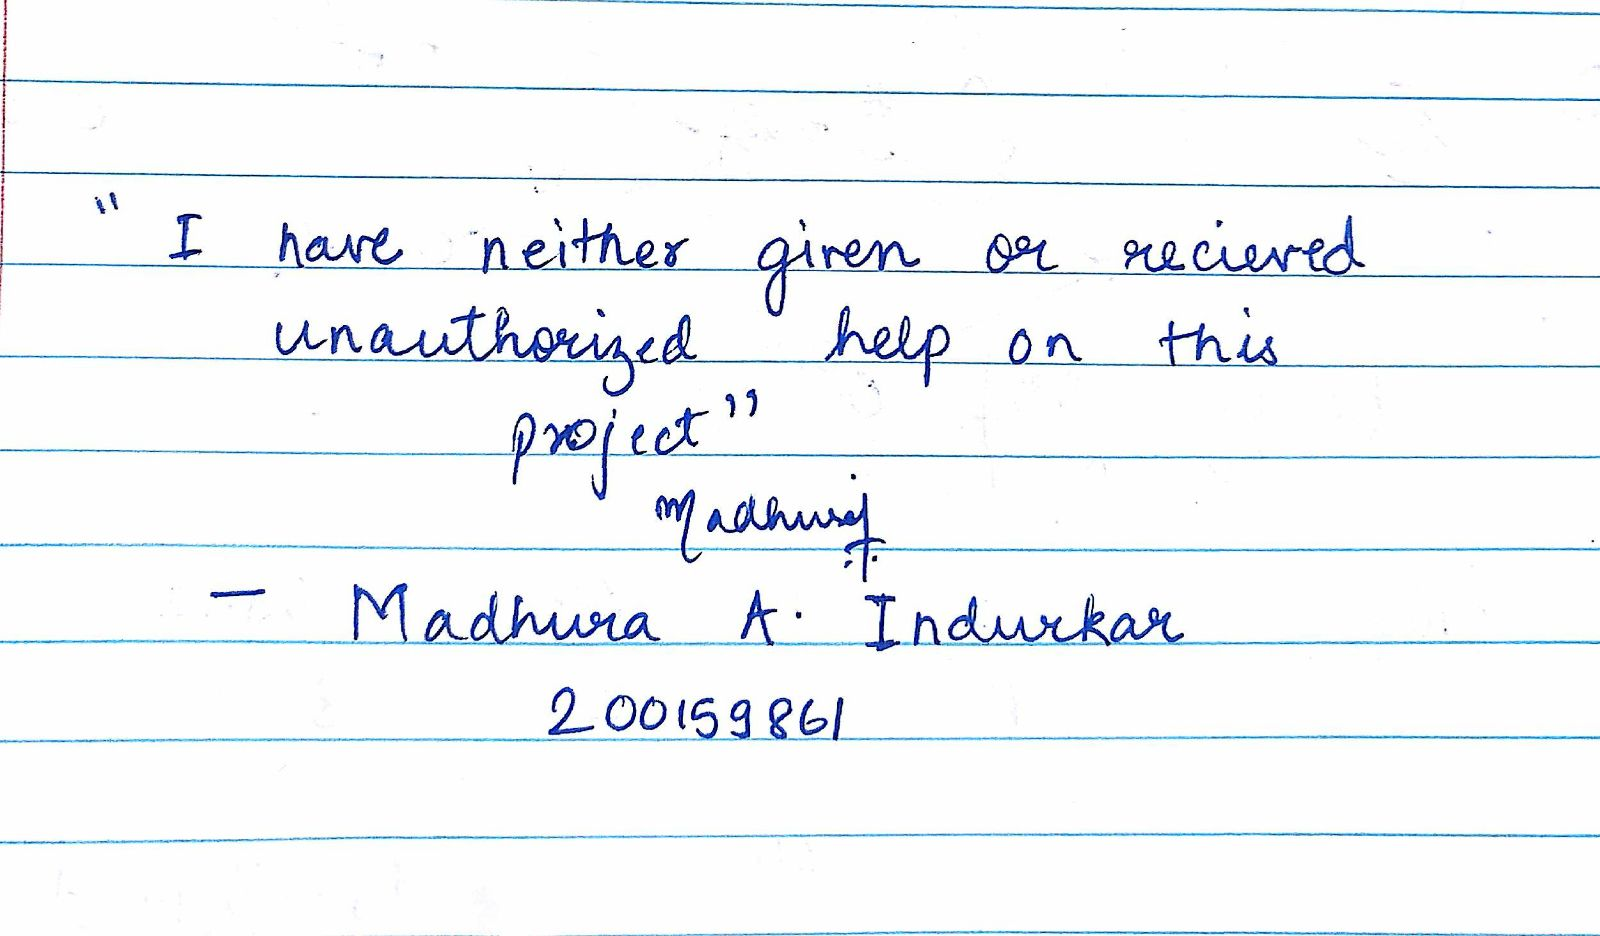 " I have neither given or recieved
unauthorized help on this
project"
Madhuraj
— Madhura A. Indurkar
200159861